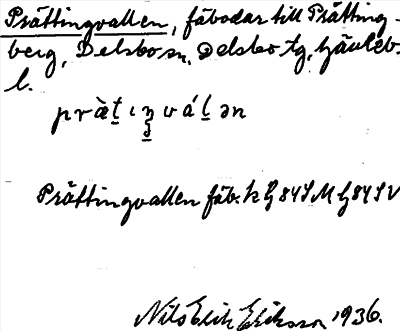 Prättingvallen, fäbodar till Prätting-
berg, Delsbo sn, Delsbo tg, Gävleb.
l.
Prättingvallen fäb. k G 84 S M G 84 S V
Nils Erik Eriksson 1936.